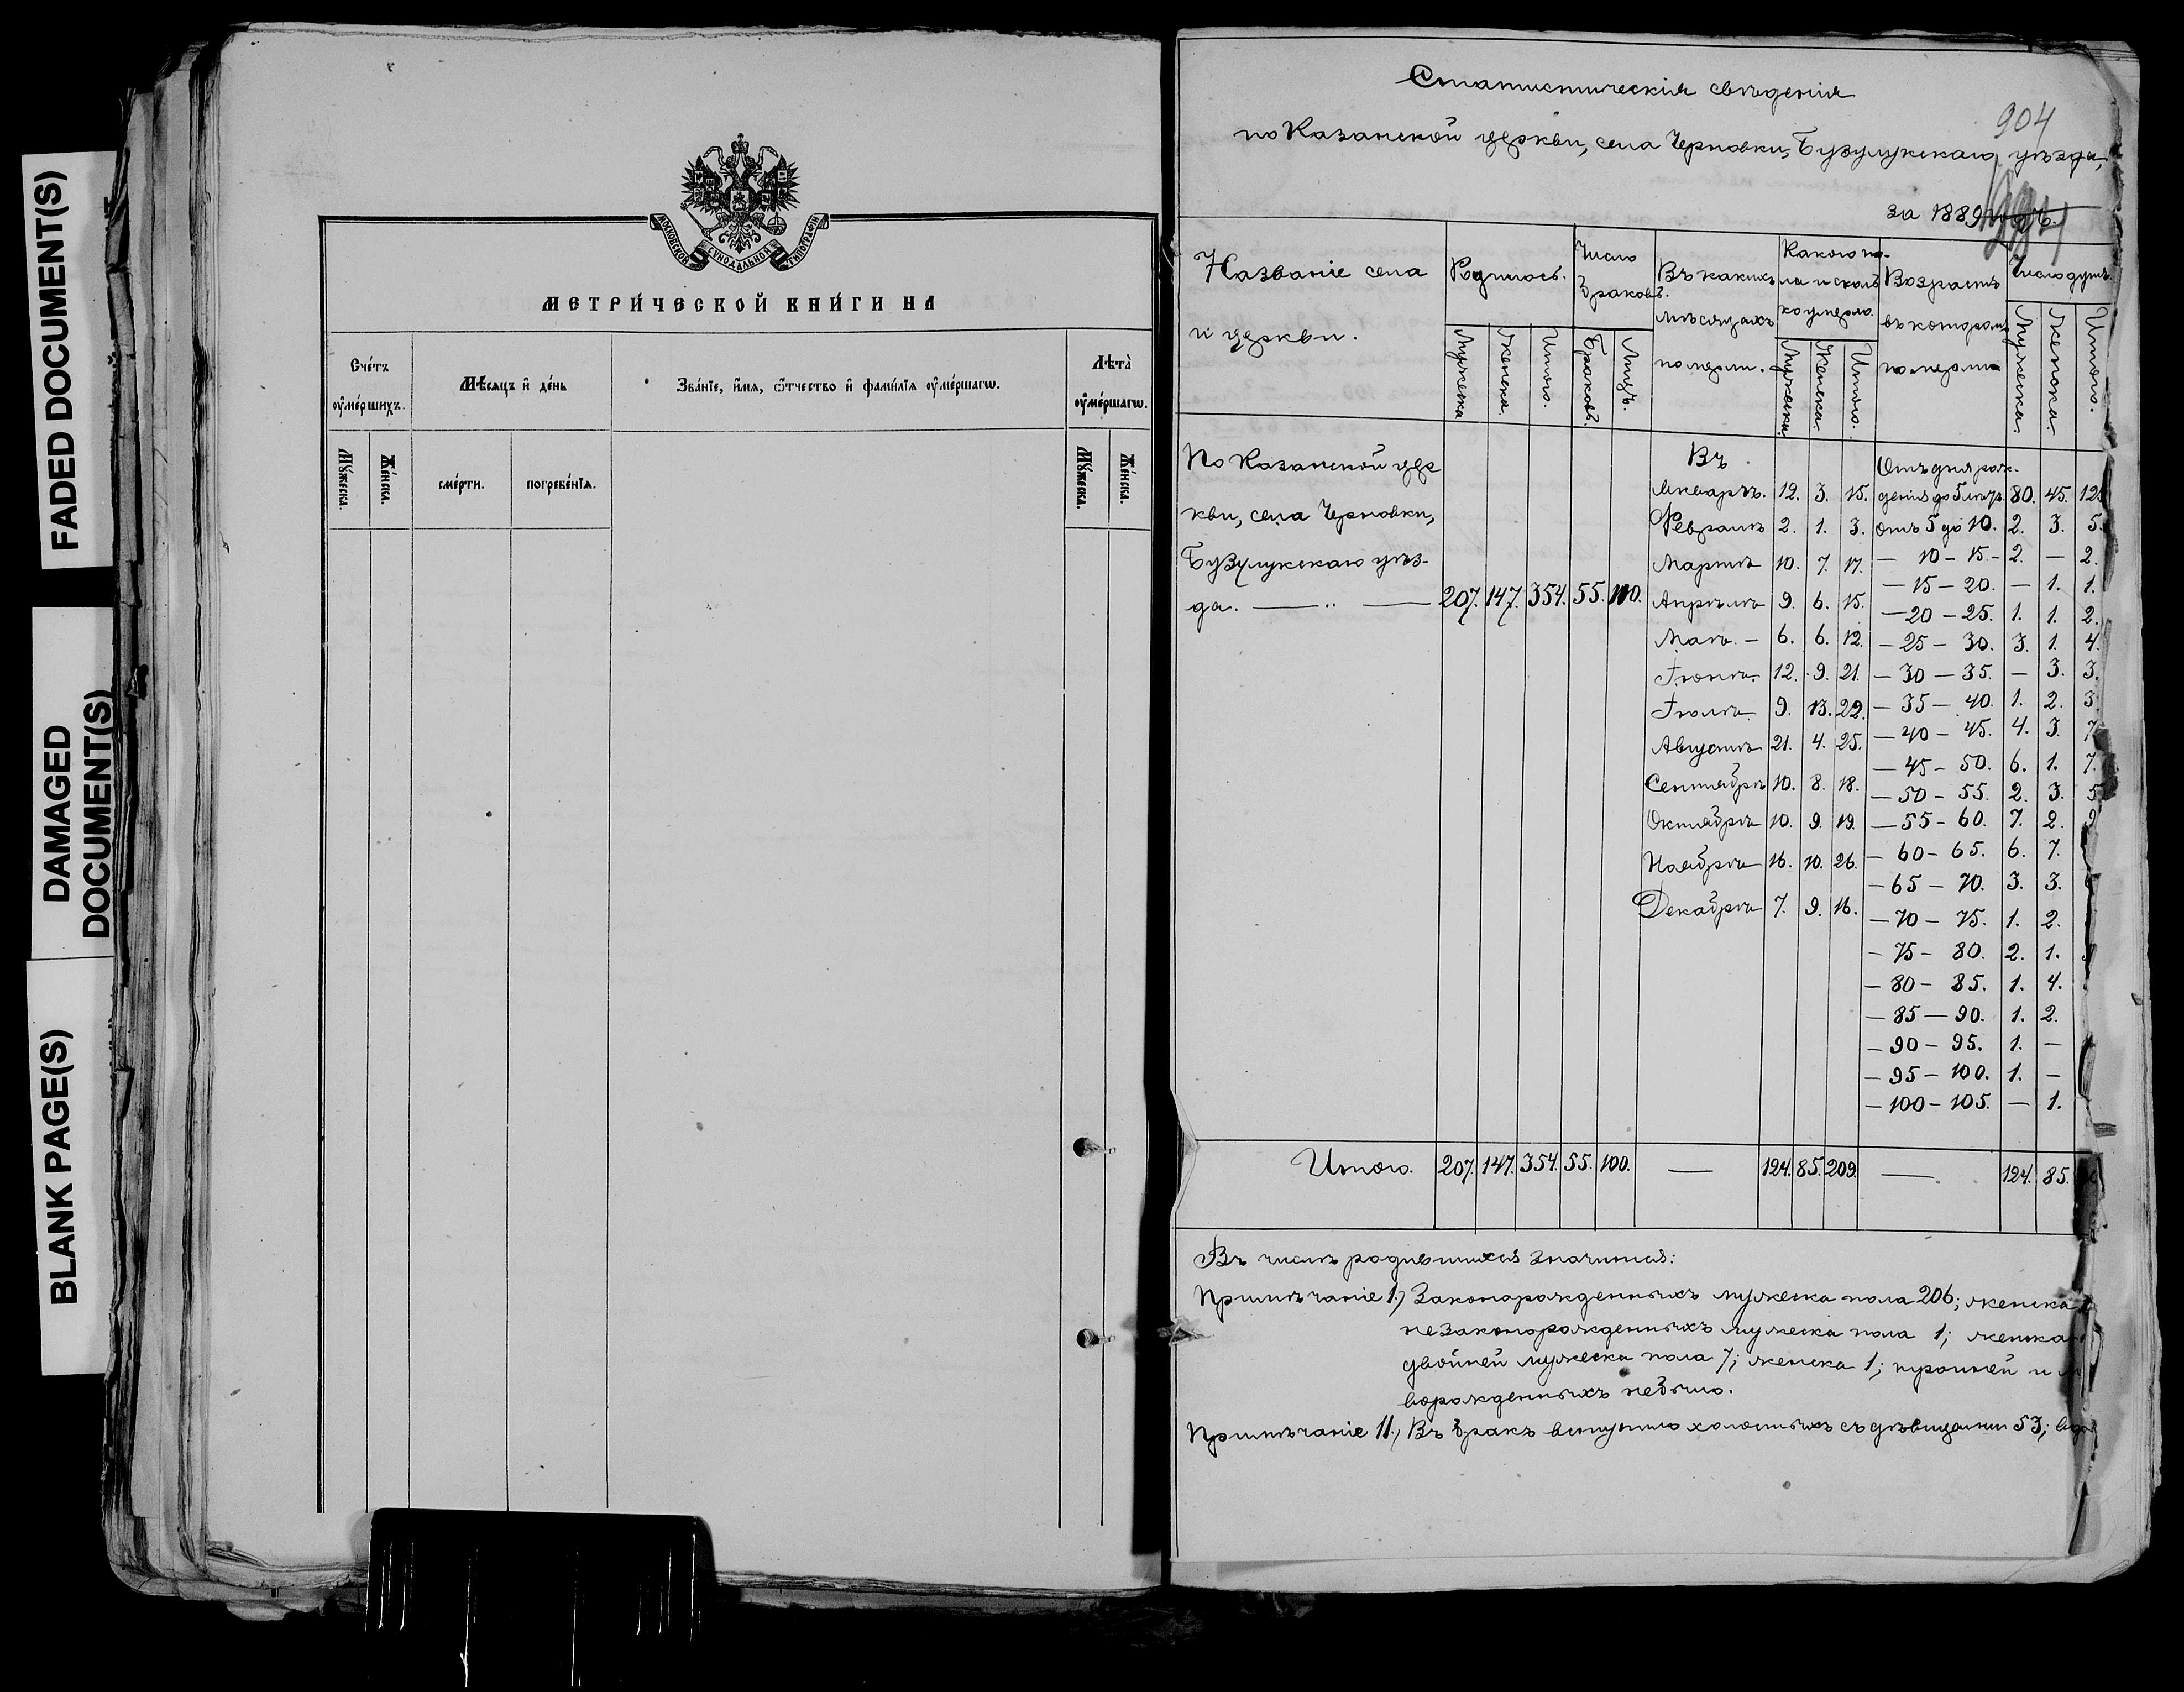 FADED DOCUMENT(S)
DAMAGED
DOCUMENT(S)
BLANK PAGE(S)
МОСКОВСКОЙ СУНОДАЛЬНОЙ ТИПОГРАФІИ
МЕТРИ́ЧЕСКОЙ КНИ́ГИ НА
Счéтъ
ᲂу҆ме́ршихъ.
Мѣсяцъ и҆ де́нь
Зва́нїе, и҆́мя, ѻ҆́тчество и҆ фами́лїя ᲂу҆ме́ршагѡ.
Лѣта̀
ᲂу҆ме́ршагѡ.
Мꙋ́жеска.
Же́нска.
сме́рти.
погребе́нїѧ.
Мꙋ́жеска.
Же́нска.
Статистическія свѣдѣнія
904
по Казанской церкви, села Черновки, Бузулукскаго уѣзда,
за 1889 годъ.
Названіе села
и церкви.
Родилось.
Число
браковъ.
Въ какихъ
мѣсяцахъ
померли.
Какого по-
ла и сколь
ко умерло.
Возрастъ
въ которомъ
померли
Число душъ.
Мужеска Женска. Итого. Браковъ. Лицъ. Мужеска. Женска. Итого. Мужеска. Женска. Итого.
По Казанской цер
кви, села Черновки,
Бузулукскаго уѣз-
да. — „ — 207. 147. 354. 55. 110.
Въ
Январѣ. 12. 3. 15.
Февралѣ 2. 1. 3.
Мартѣ 10. 7. 17.
Апрѣлѣ 9. 6. 15.
Маѣ. – 6. 6. 12.
Іюнѣ. 12. 9. 21.
Іюлѣ. 9. 13. 22.
Августѣ 21. 4. 25.
Сентябрѣ 10. 8. 18.
Октябрѣ 10. 9. 19.
Ноябрѣ 16. 10. 26.
Декабрѣ 7. 9. 16.
Отъ дня рож-
денія до 5 лѣтъ. 80. 45. 125
отъ 5 до 10. 2. 3. 5.
— 10 – 15 – 2. — 2.
— 15 – 20. — 1. 1.
— 20 – 25. 1. 1. 2.
— 25 – 30. 3. 1. 4.
— 30 – 35. — 3. 3.
— 35 – 40. 1. 2. 3.
— 40 – 45. 4. 3. 7
— 45 – 50. 6. 1. 7.
— 50 – 55. 2. 3. 5
— 55 – 60. 7. 2. 9
— 60 – 65. 6. 7.
— 65 – 70. 3. 3.
— 70 – 75. 1. 2.
— 75 – 80. 2. 1.
— 80 – 85. 1. 4.
— 85 – 90. 1. 2.
— 90 – 95. 1. —
— 95 – 100. 1. —
— 100 – 105. — 1.
Итого. 207. 147. 354. 55. 100. — 124. 85. 209. — 124. 85.
Въ числѣ родившихся значится:
Примѣчаніе 1.) Законорожденныхъ мужеска пола 206; женска
незаконорожденныхъ мужеска пола 1; женска
двойней мужеска пола 7; женска 1; тройней и
ворожденныхъ небыло.
Примѣчаніе 11.) Въ бракъ вступило холостыхъ съ дѣвицами 53;